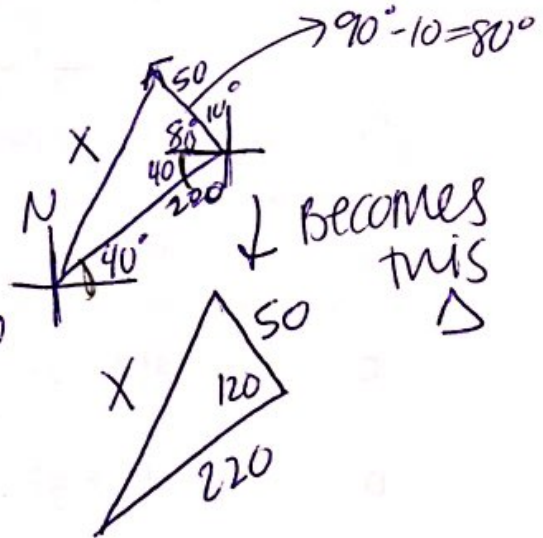 90°-10=80°
50
10°
80°
X
40
200
N
40°
Becomes
this
Δ
50
X
120
220